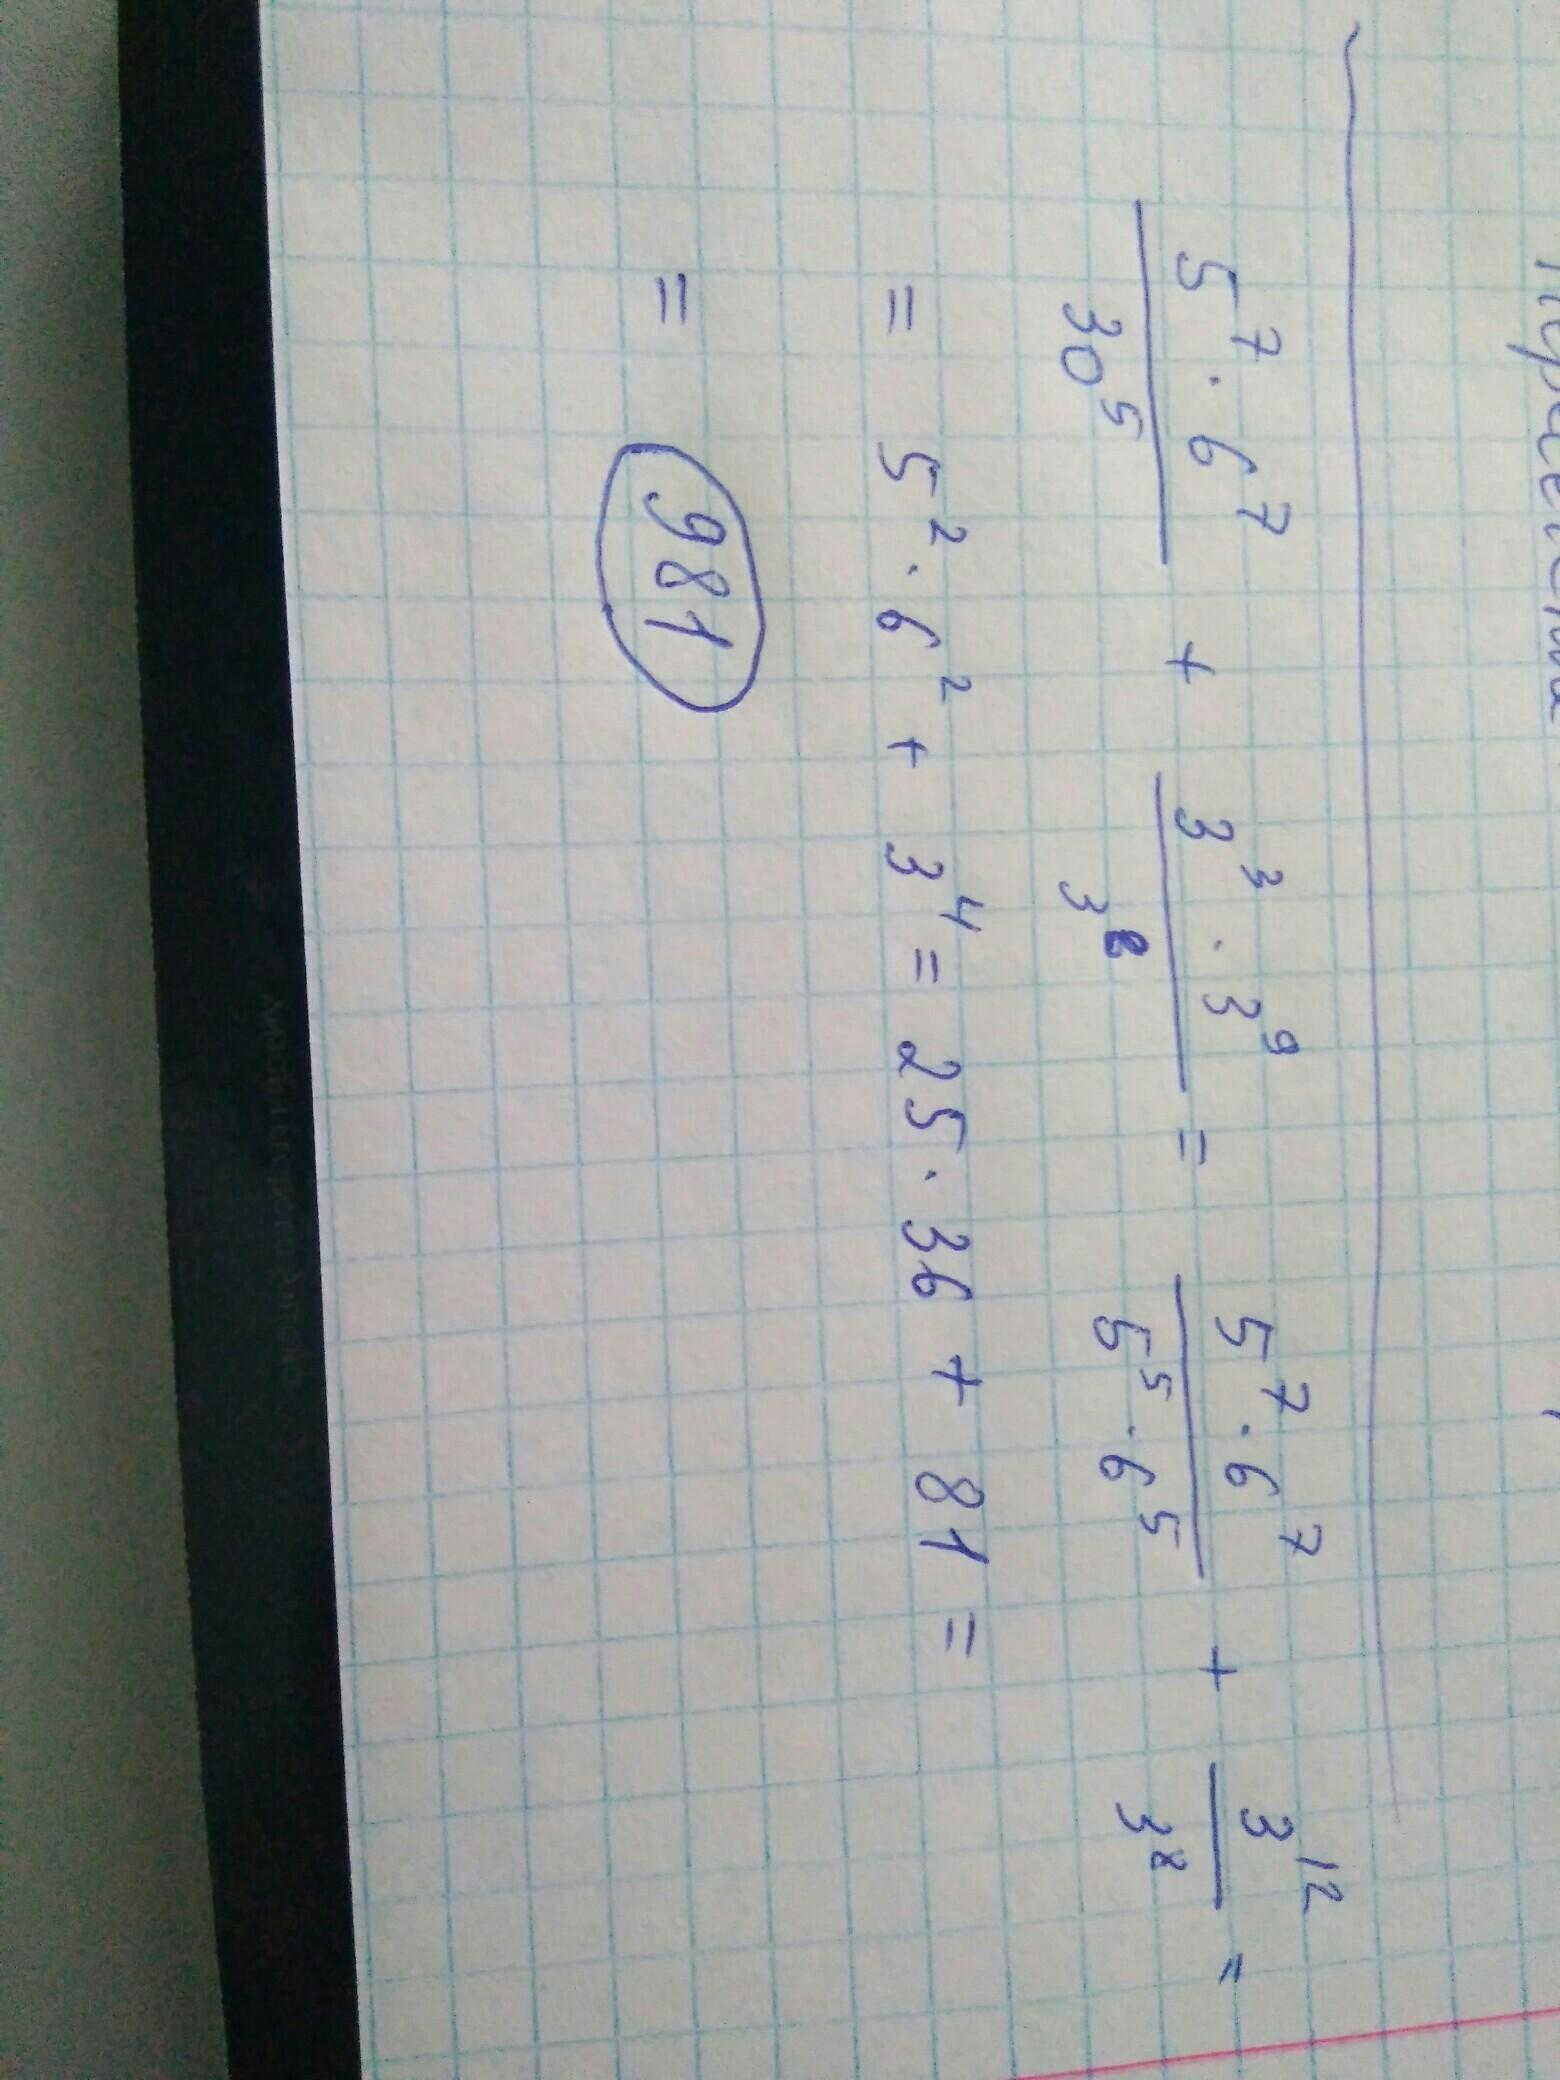 5⁷·6⁷/30⁵ + 3³·3⁹/3⁸ = 5⁷·6⁷/5⁵·6⁵ + 3¹²/3⁸ =
= 5²·6² + 3⁴ = 25·36 + 81 =
= 981